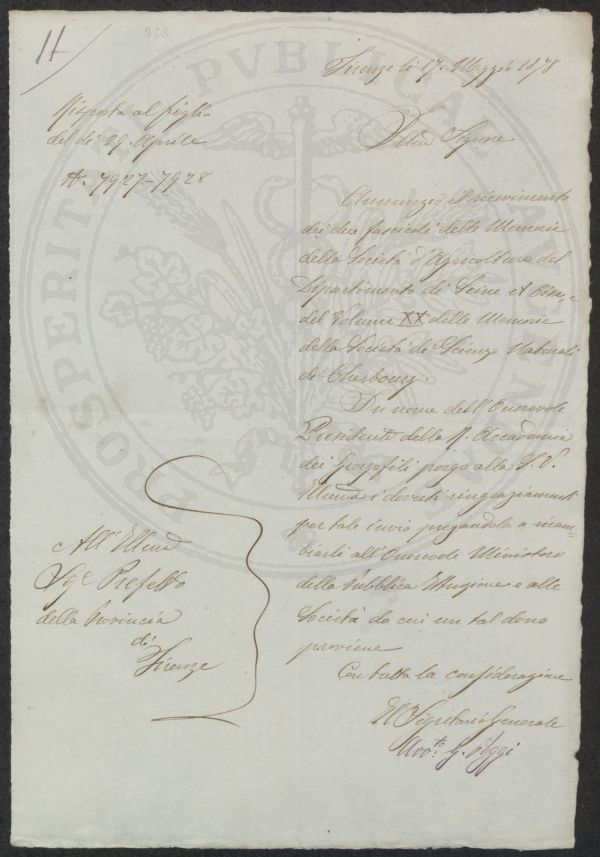 11
Firenze li 17. Maggio 1878
Risposta al foglio
del dì 29. Aprile
N. 7927-7928
Illmo Signore
Annunzio il ricevimento
dei due fascicoli delle Memorie
della Società d'Agricoltura del
Dipartimento di Seine et Oise, e
del Volume XX delle Memorie
della Società di Scienze Naturali
di Cherbourg.
In nome dell'Onorevole
Presidente della R. Accademia
dei Georgofili porgo alla S. V.
Illma i dovuti ringraziamenti
per tale invio pregandola a ricam=
biarli all'Onorevole Ministero
della Pubblica Istruzione e alle
Società da cui un tal dono
proviene
Con tutta la considerazione
Il Segretario Generale
Avvto. G. Poggi
All'Illmo
Sigr Prefetto
della Provincia
di
Firenze
PROSPERITATI PUBLICAE AUGENDAE